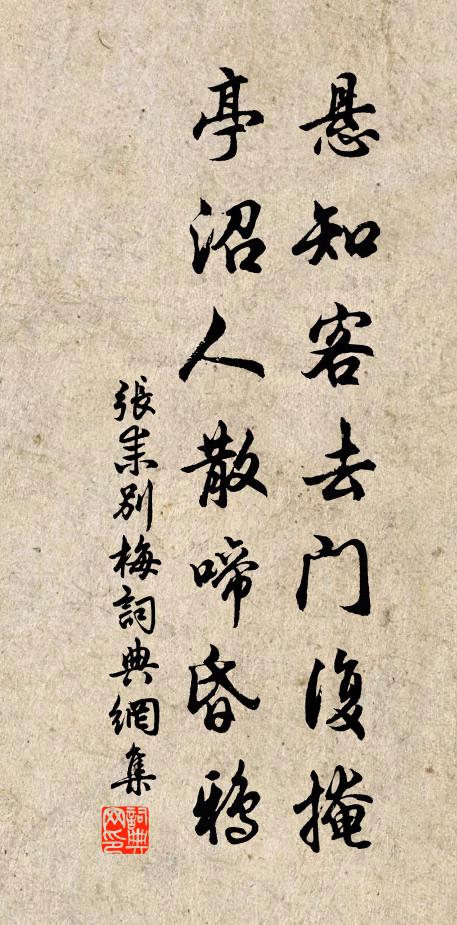 悬知客去门復掩
亭沼人散啼昏鸦
張耒别梅詞典網集
詞典
网印